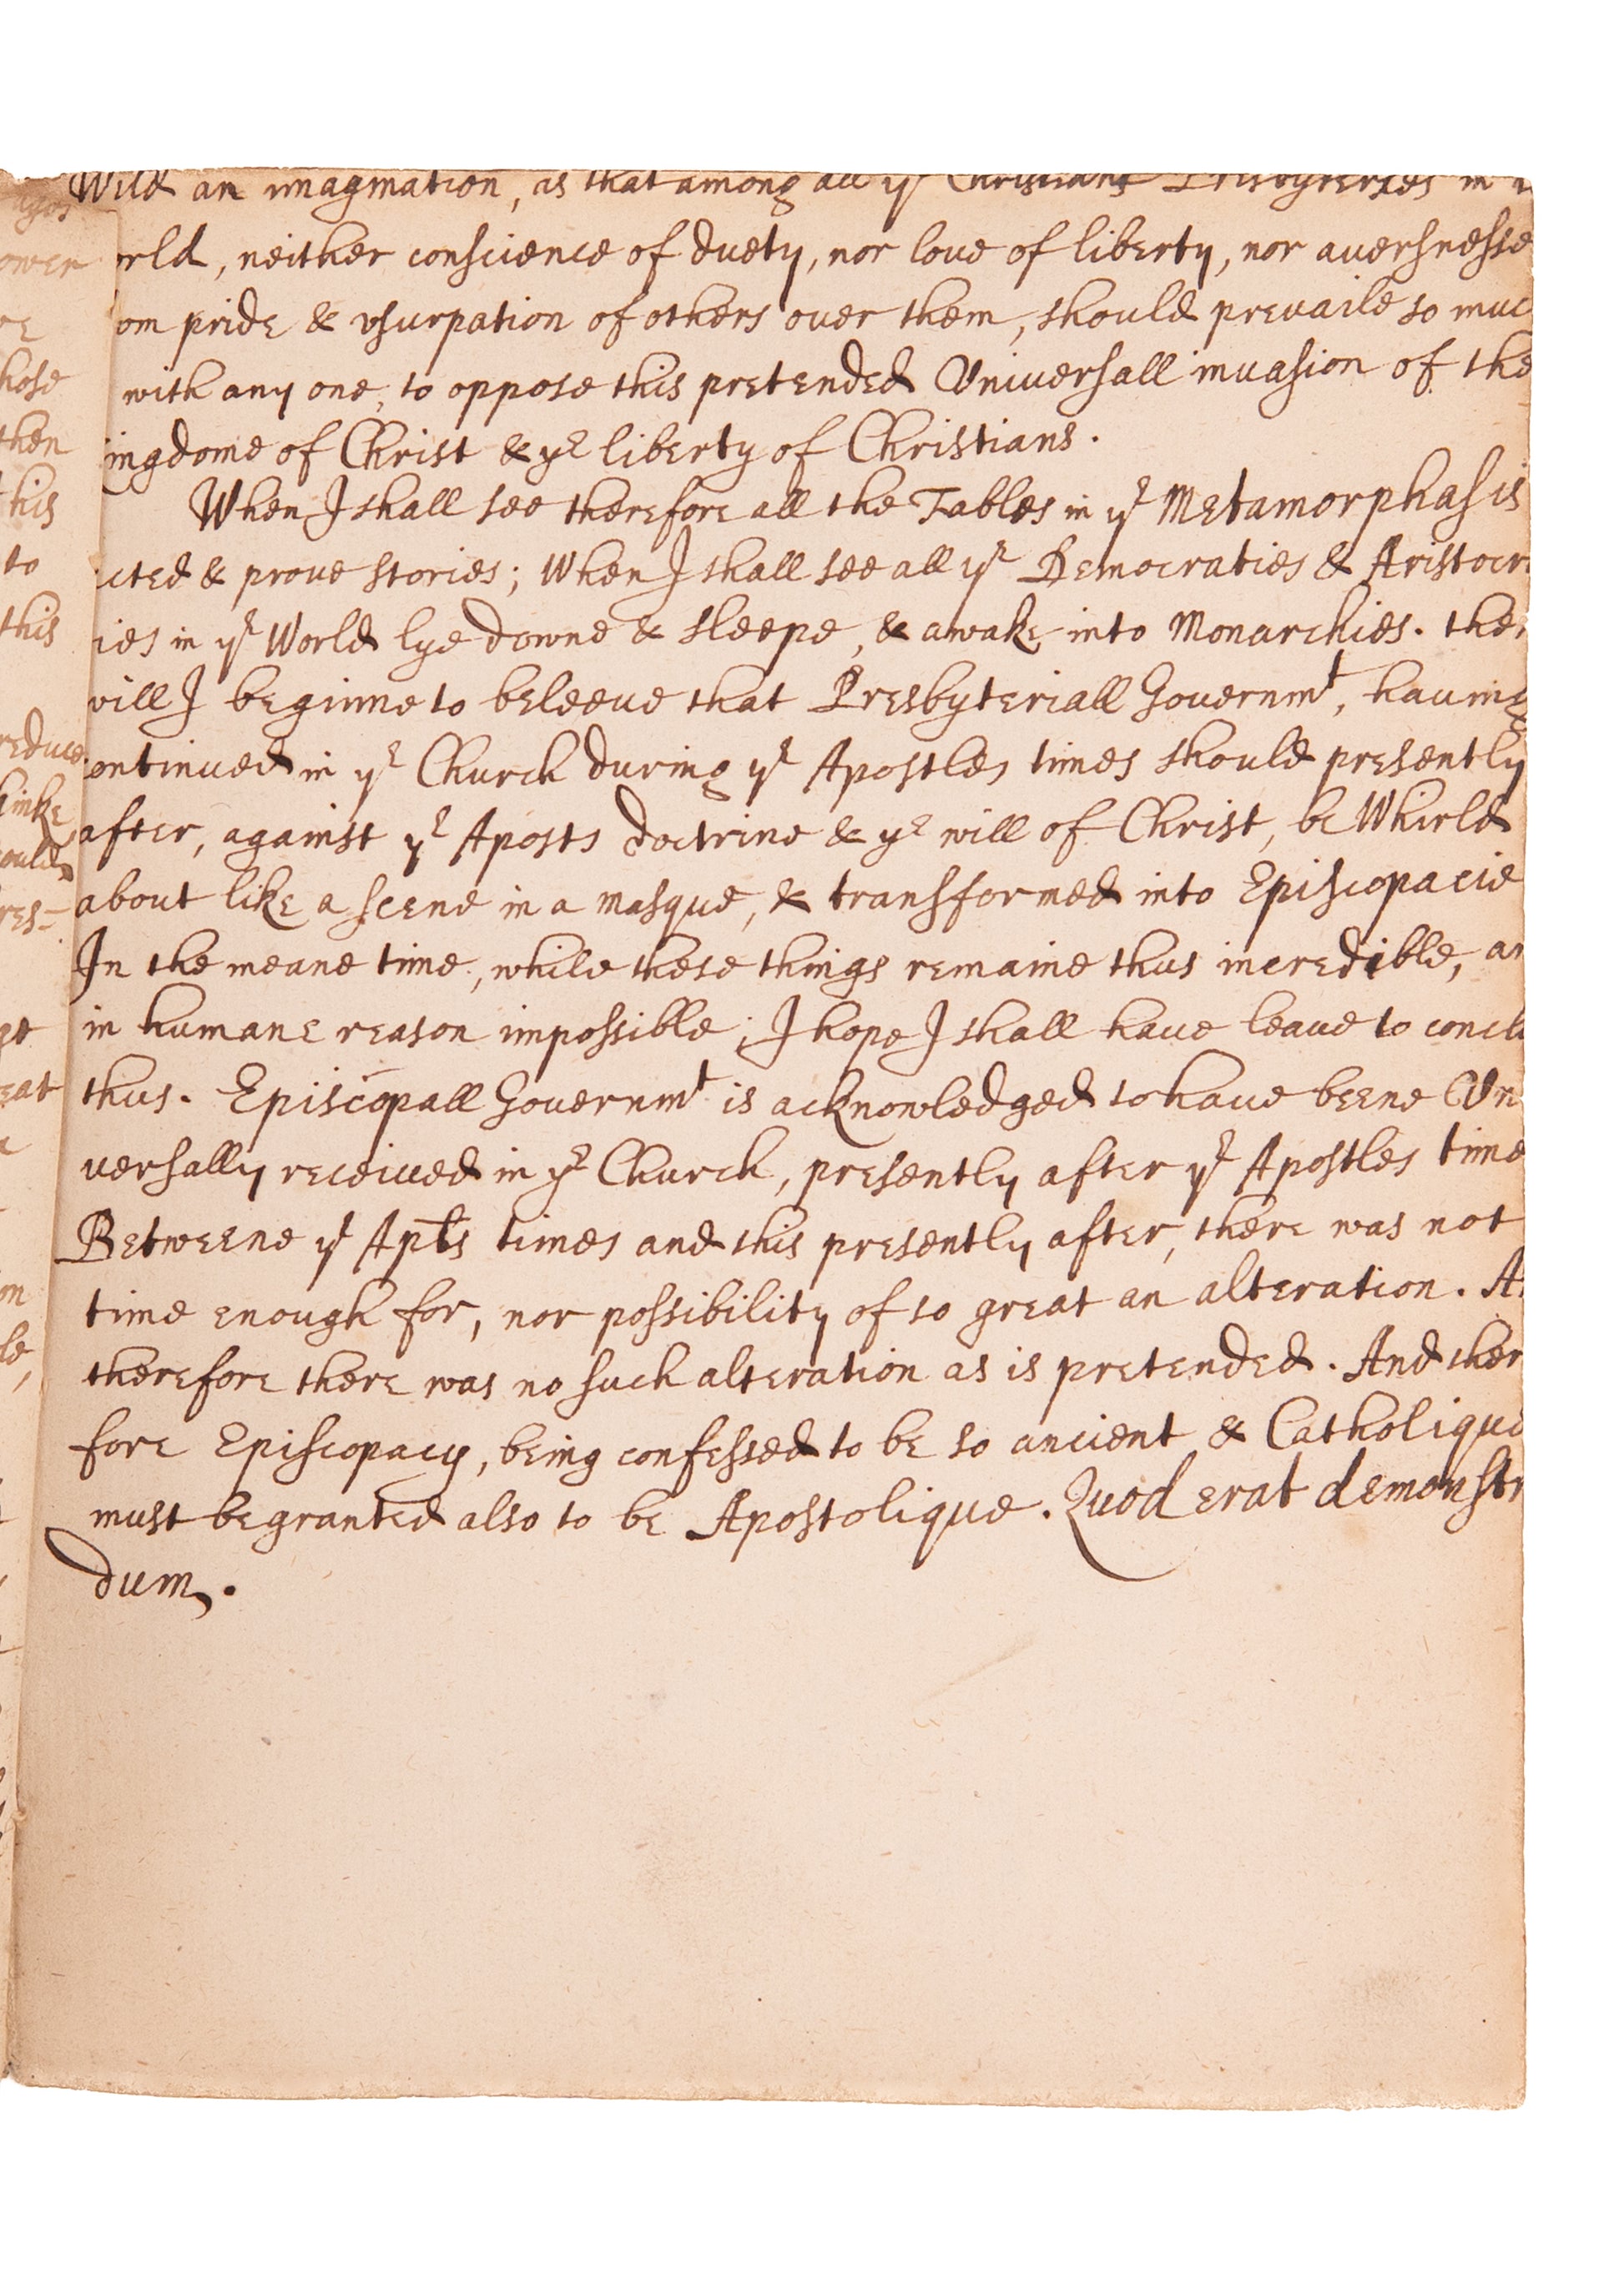 Wild an imagination, as that among all yͤ Christians Presbyteries in
rld, neither conscience of duety, nor loue of liberty, nor auersnesse
om pride & vsurpation of others ouer them, should preuaile so muc
with any one, to oppose this pretended Vniuersall inuasion of the
ingdome of Christ & yͤ liberty of Christians.
When I shall see therefore all the Fables in yͤ Metamorphasis
cted & proue stories; When I shall see all yͤ Democraties & Aristocr
ies in yͤ World lye downe & sleepe, & awake into Monarchies. then
will I beginne to beleeue that Presbyteriall Gouernmͭ, hauing
ontinued in yͤ Church during yͤ Apostles times should presently
after, against yͤ Aposts doctrine & yͤ will of Christ, be Whirld
about like a scene in a masque, & transformed into Episcopacie
In the meane time, while these things remaine thus incredible, an
in humane reason impossible; I hope I shall haue leaue to conclu
thus. Episcopall Gouernmͭ is acknowledged to haue beene Vn
uersally receiued in yͤ Church, presently after yͤ Apostles time
Betweene yͤ Apts times and this presently after, there was not
time enough for, nor possibility of so great an alteration. A
therefore there was no such alteration as is pretended. And ther
fore Episcopacy, being confessed to be so ancient & Catholique
must be granted also to be Apostolique. Quod erat demonstr
dum.
ower
hose
then
this
to
this
reduce
hinke
ould
res-
eat
on